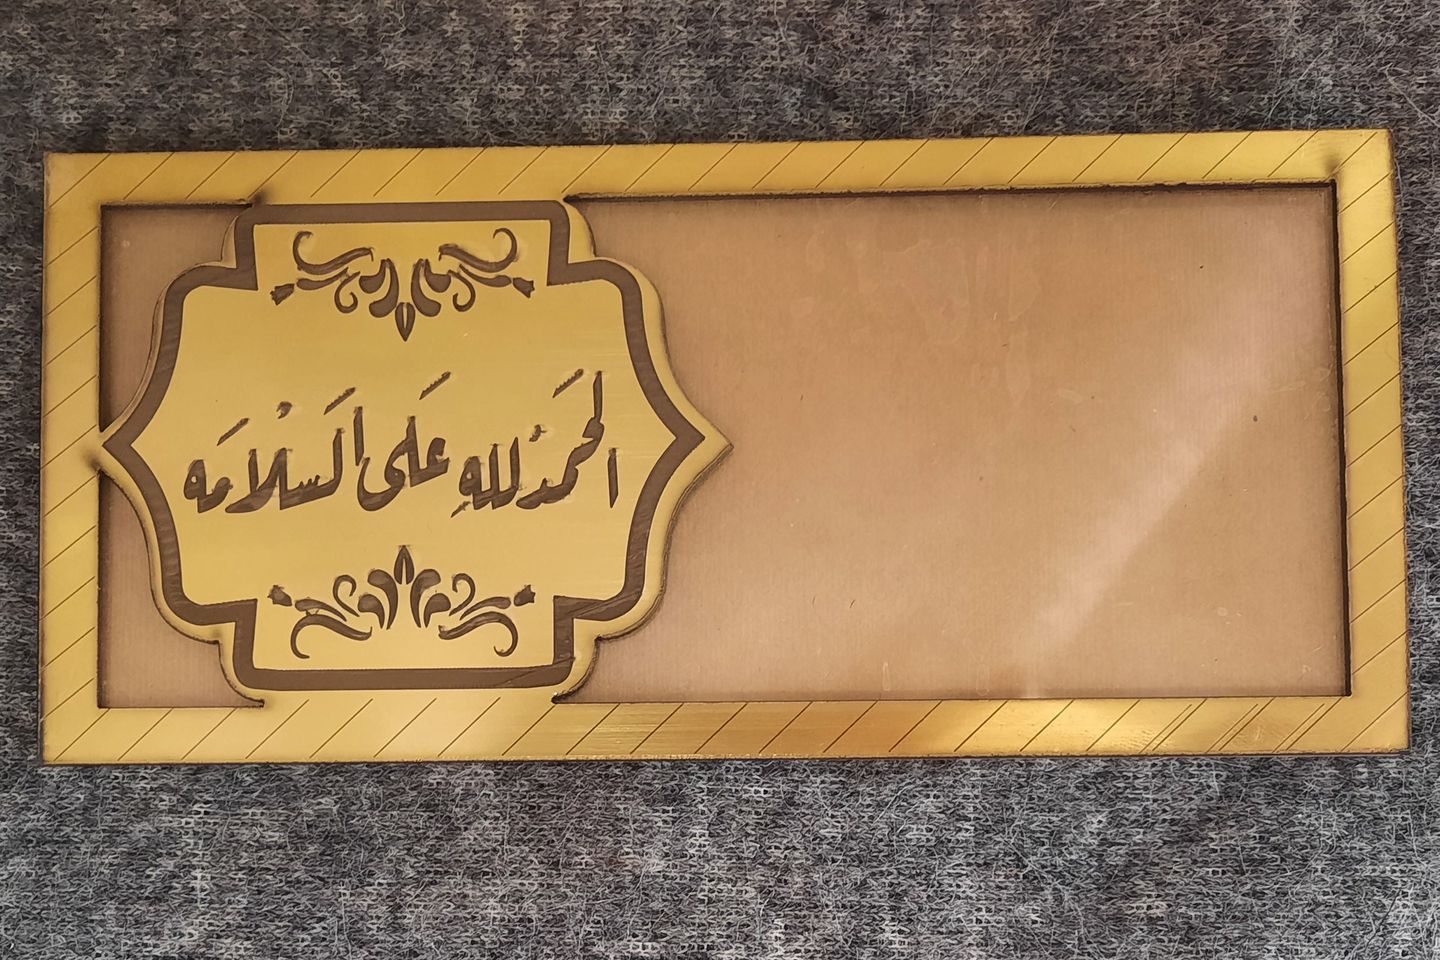 الحَمدْ للهِ عَلى اَلسْلامَه